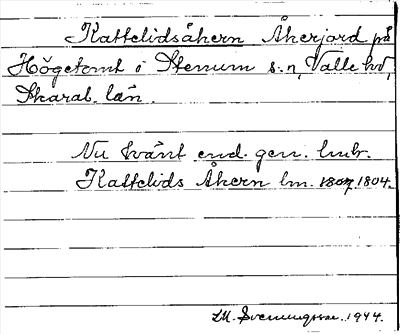 Kattelidsåkern Åkerjord på
Högetomt i Stenum s:n, Valle hd,
Skarab. län.
Nu känt end. gen. lmhr.
Kattelids Åkern lm. 1804.
LM. Svenungsson. 1944.